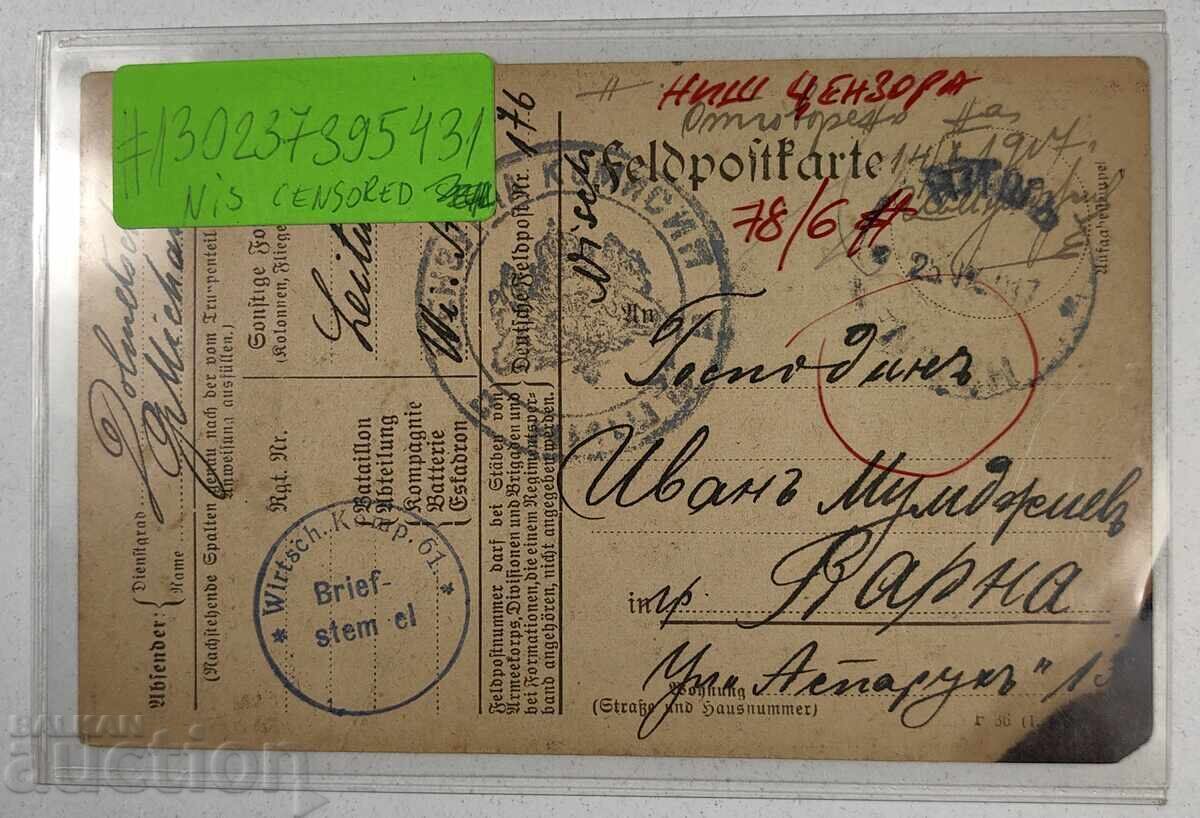 #130237395431
NIS CENSORED
НИШ ЦЕНЗОРА
Отговорено на
14/ 1917.
Feldpostkarte
78/6 #
Aufgabestempel
An
Господинъ
Иванъ Мумджиевъ
in гр. Варна
Ул. "Аспарухъ" 13
Wohnung
(Straße und Hausnummer)
Absender:
Dienstgrad
Dolmetsch
Name
(Nachstehende Spalten genau nach der vom Truppenteil
Anweisung ausfüllen.)
Sonstige Fo
(Kolonnen, Fliege
Rgt. Nr.
Bataillon
Abteilung
Kompagnie
Batterie
Eskadron
Deutsche Feldpost Nr. 176
Nisch
Feldpostnummer darf bei Stäben von
Armeekorps, Divisionen und Brigaden und
bei Formationen, die einem Regimentsver-
band angehören, nicht angegeben werden.
* Wirtsch. Komp. 61. *
Brief-
stempel
BALKAN
auction